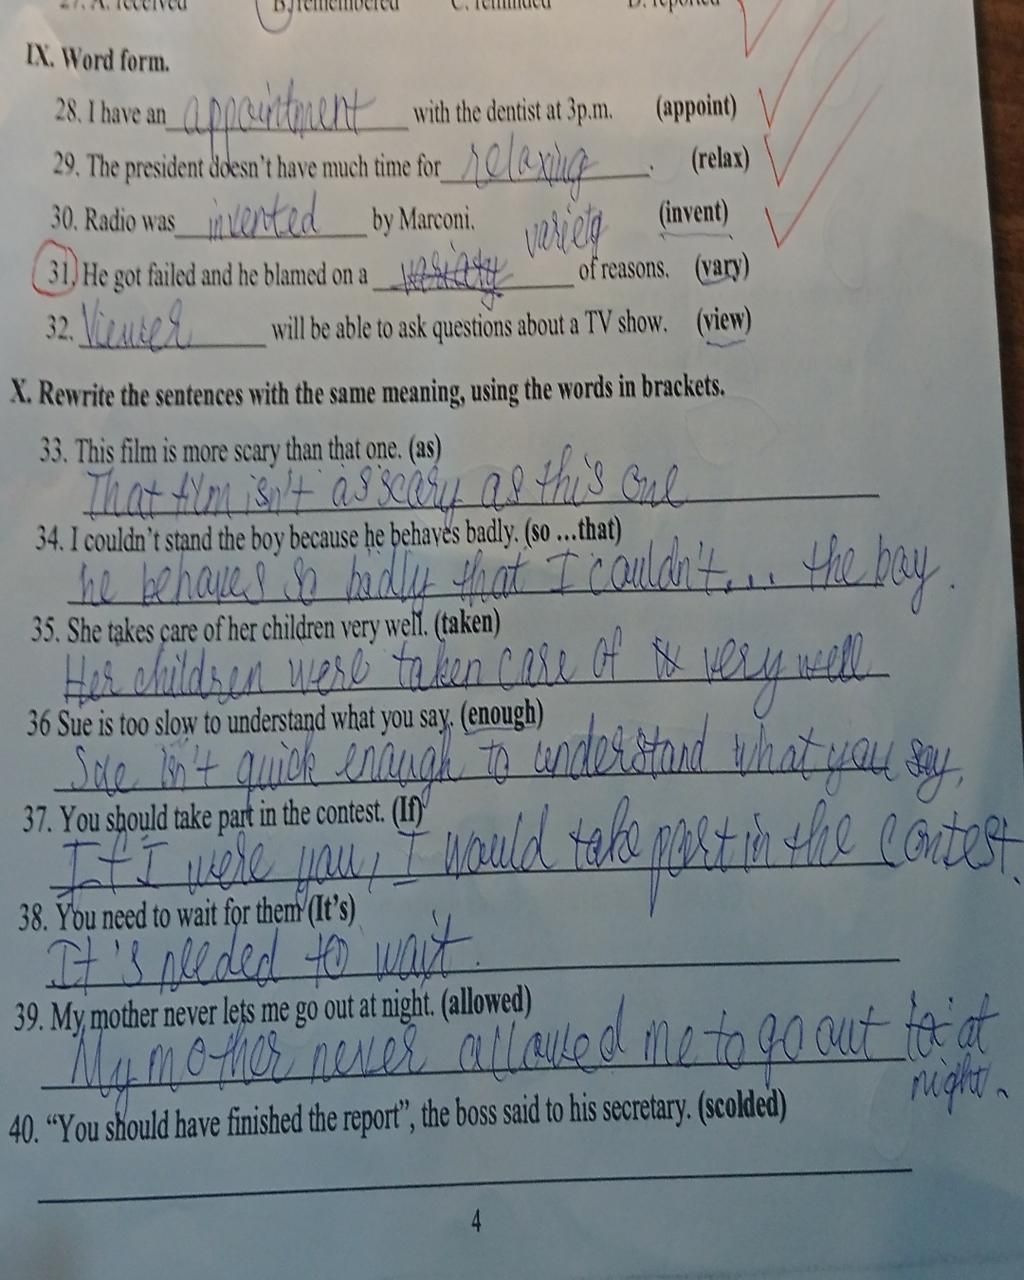 27. A. received B. remembered C. reminded D. reported
IX. Word form.
28. I have an appointment with the dentist at 3p.m. (appoint)
29. The president doesn't have much time for relaxing. (relax)
30. Radio was invented by Marconi. (invent)
variety
31. He got failed and he blamed on a of reasons. (vary)
32. Viewer will be able to ask questions about a TV show. (view)
X. Rewrite the sentences with the same meaning, using the words in brackets.
33. This film is more scary than that one. (as)
That film isn't as scary as this one
34. I couldn't stand the boy because he behaves badly. (so ...that)
he behaves so badly that I couldn't... the boy.
35. She takes care of her children very well. (taken)
Her children were taken care of very well
36 Sue is too slow to understand what you say. (enough)
Sue isn't quick enough to understand what you say.
37. You should take part in the contest. (If)
If I were you, I would take part in the contest.
38. You need to wait for them (It's)
It's needed to wait.
39. My mother never lets me go out at night. (allowed)
My mother never allowed me to go out at
night.
40. “You should have finished the report”, the boss said to his secretary. (scolded)
4